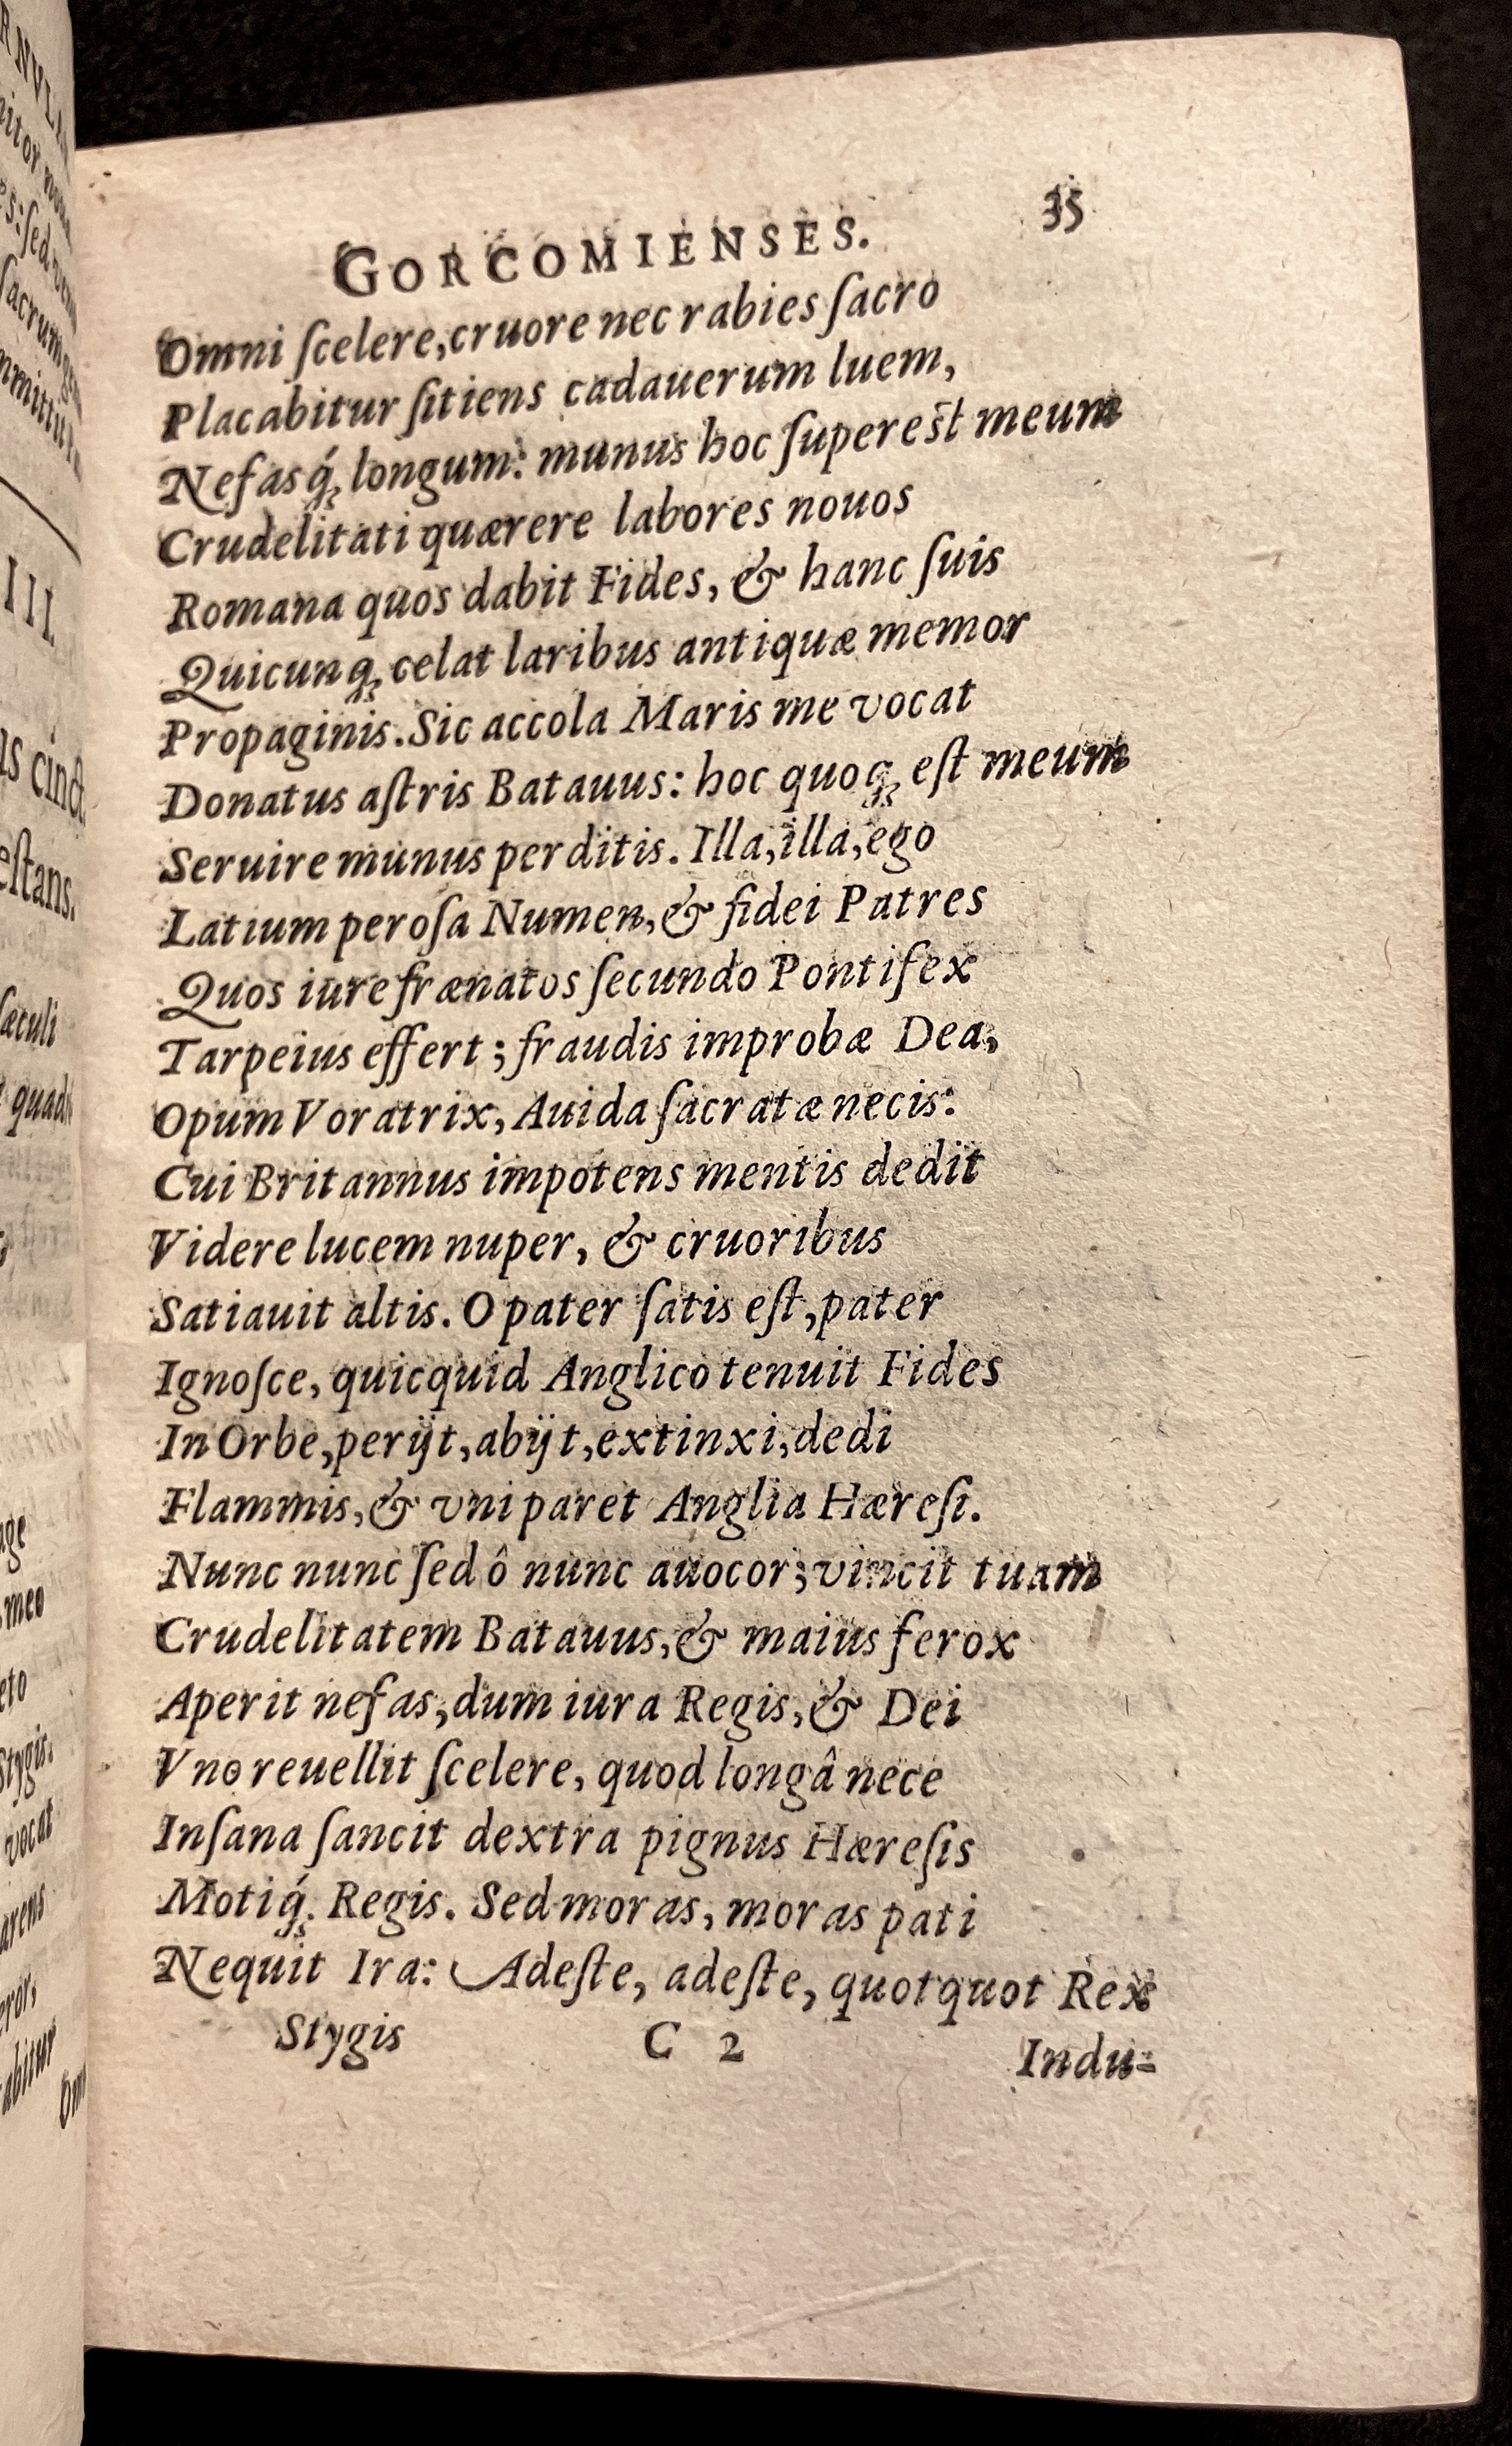 GORCOMIENSES. 35
Omni ſcelere, cruore nec rabies ſacro
Placabitur ſitiens cadauerum luem,
Nefasq́; longum: munus hoc ſupereſt meum
Crudelitati quærere labores nouos
Romana quos dabit Fides, & hanc ſuis
Quicunq; celat laribus antiquæ memor
Propaginis. Sic accola Maris me vocat
Donatus aſtris Batauus: hoc quoq; eſt meum
Seruire munus perditis. Illa, illa, ego
Latium peroſa Numen, & fidei Patres
Quos iure frænatos ſecundo Pontifex
Tarpeius effert; fraudis improbæ Dea,
Opum Voratrix, Auida ſacratæ necis:
Cui Britannus impotens mentis dedit
Videre lucem nuper, & cruoribus
Satiauit altis. O pater ſatis eſt, pater
Ignoſce, quicquid Anglico tenuit Fides
In Orbe, perijt, abijt, extinxi, dedi
Flammis, & vni paret Anglia Hæreſi.
Nunc nunc ſed ô nunc auocor; vincit tuam
Crudelitatem Batauus, & maius ferox
Aperit nefas, dum iura Regis, & Dei
Vno reuellit ſcelere, quod longâ nece
Inſana ſancit dextra pignus Hæreſis
Motiq́; Regis. Sed moras, moras pati
Nequit Ira: Adeſte, adeſte, quotquot Rex
Stygis C 2 Indu-